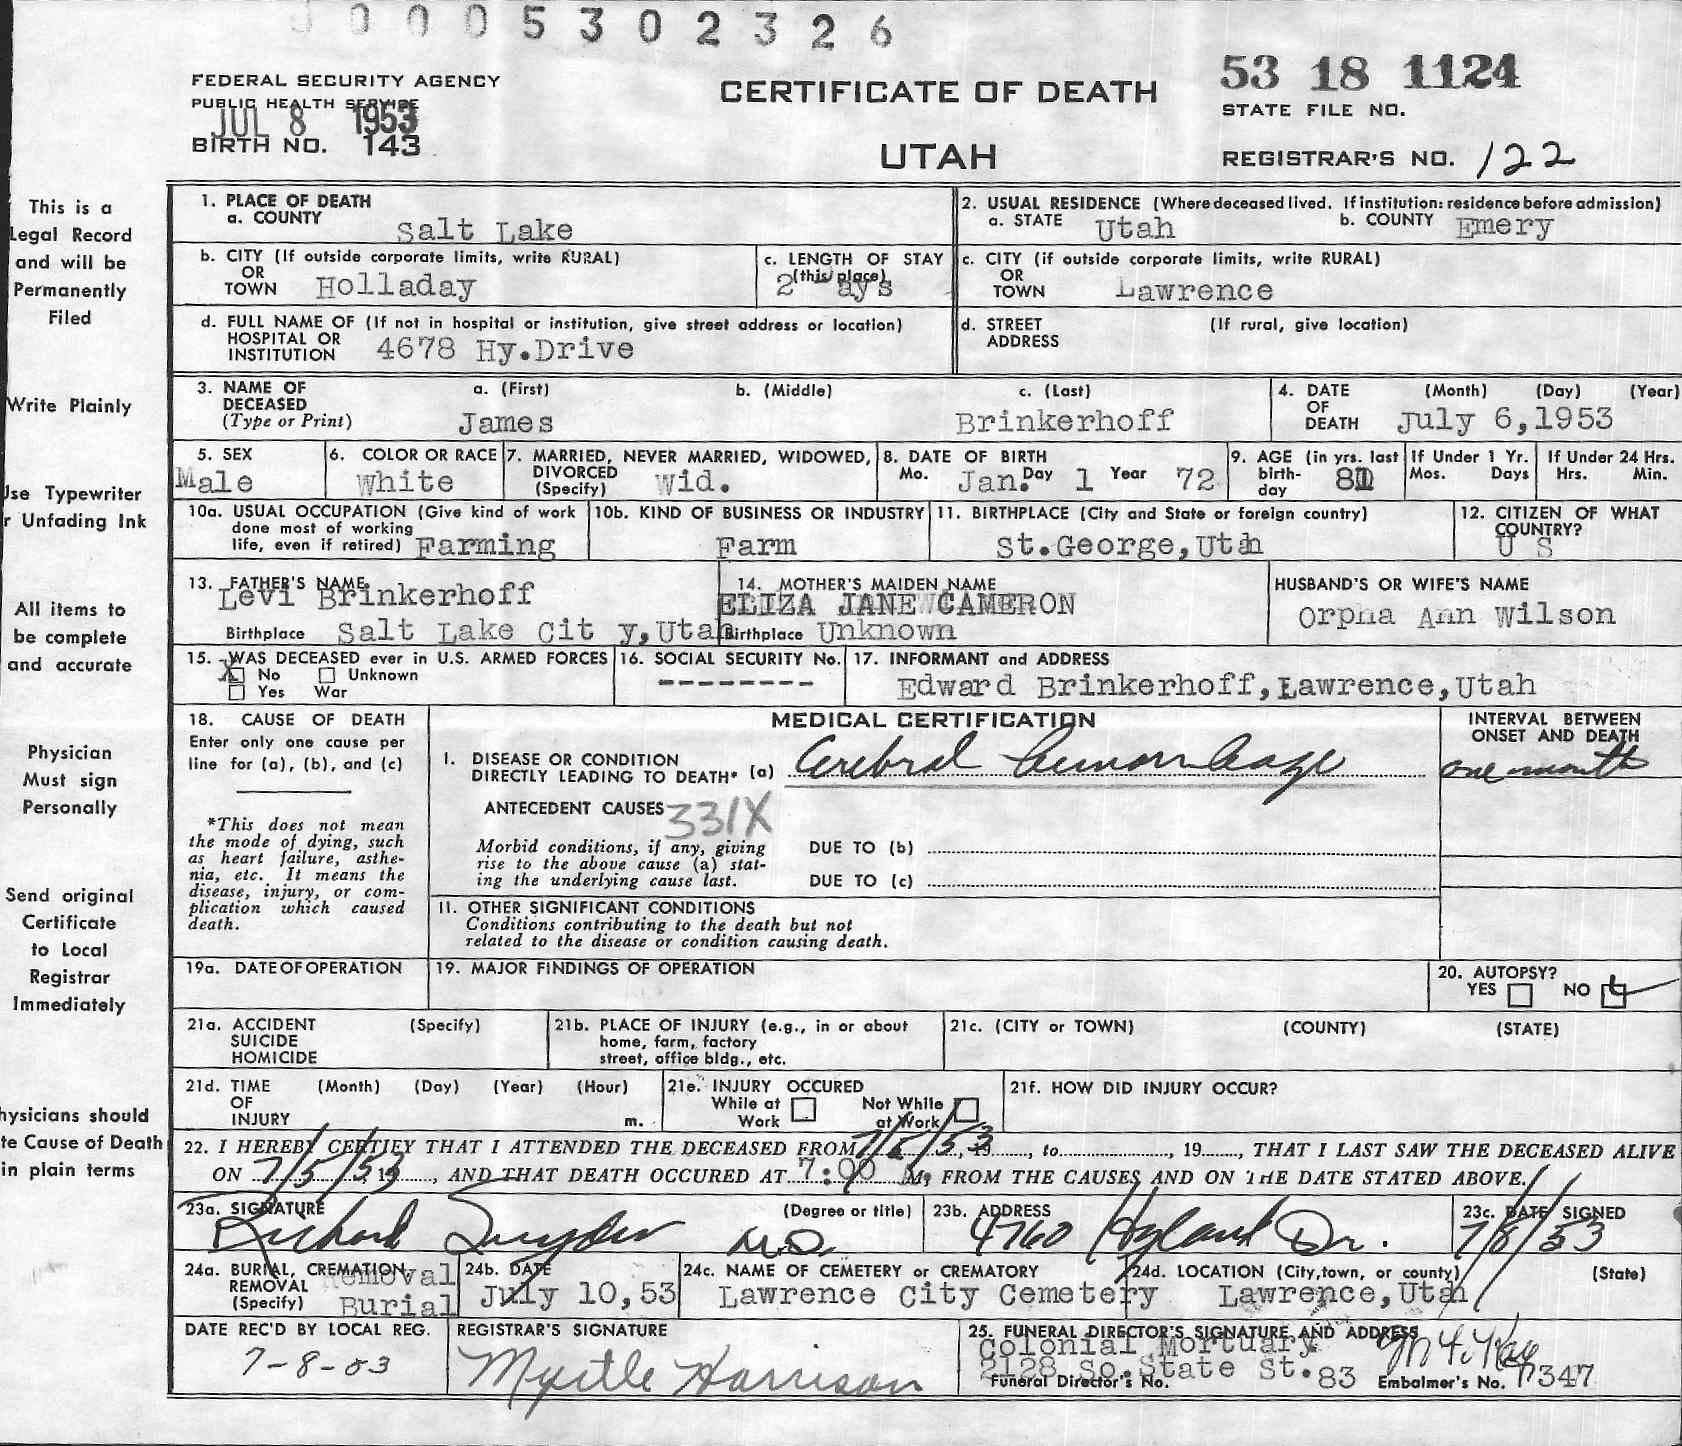 0005302326
FEDERAL SECURITY AGENCY
PUBLIC HEALTH SERVICE
JUL 8 1953
BIRTH NO. 143
CERTIFICATE OF DEATH
UTAH
53 18 1124
STATE FILE NO.
REGISTRAR'S NO. 122
This is a
Legal Record
and will be
Permanently
Filed
Write Plainly
Use Typewriter
r Unfading Ink
All items to
be complete
and accurate
Physician
Must sign
Personally
Send original
Certificate
to Local
Registrar
Immediately
hysicians should
te Cause of Death
in plain terms
1. PLACE OF DEATH
a. COUNTY Salt Lake
2. USUAL RESIDENCE (Where deceased lived. If institution: residence before admission)
a. STATE Utah b. COUNTY Emery
b. CITY (If outside corporate limits, write RURAL)
OR
TOWN Holladay
c. LENGTH OF STAY
(this place)
2 ays
c. CITY (if outside corporate limits, write RURAL)
OR
TOWN Lawrence
d. FULL NAME OF (If not in hospital or institution, give street address or location)
HOSPITAL OR
INSTITUTION 4678 Hy.Drive
d. STREET (If rural, give location)
ADDRESS
3. NAME OF a. (First) b. (Middle) c. (Last)
DECEASED
(Type or Print) James Brinkerhoff
4. DATE (Month) (Day) (Year)
OF
DEATH July 6,1953
5. SEX
Male
6. COLOR OR RACE
White
7. MARRIED, NEVER MARRIED, WIDOWED,
DIVORCED
(Specify) Wid.
8. DATE OF BIRTH
Mo. Jan. Day 1 Year 72
9. AGE (in yrs. last
birth-
day 81
If Under 1 Yr.
Mos. Days
If Under 24 Hrs.
Hrs. Min.
10a. USUAL OCCUPATION (Give kind of work
done most of working
life, even if retired) Farming
10b. KIND OF BUSINESS OR INDUSTRY
Farm
11. BIRTHPLACE (City and State or foreign country)
St.George,Utah
12. CITIZEN OF WHAT
COUNTRY?
U S
13. FATHER'S NAME
Levi Brinkerhoff
Birthplace Salt Lake Cit y,Utah
14. MOTHER'S MAIDEN NAME
ELIZA JANE CAMERON
Birthplace Unknown
HUSBAND'S OR WIFE'S NAME
Orpha Ann Wilson
15. WAS DECEASED ever in U.S. ARMED FORCES
X No Unknown
Yes War
16. SOCIAL SECURITY No.
--------
17. INFORMANT and ADDRESS
Edward Brinkerhoff,Lawrence,Utah
18. CAUSE OF DEATH
Enter only one cause per
line for (a), (b), and (c)
*This does not mean
the mode of dying, such
as heart failure, asthe-
nia, etc. It means the
disease, injury, or com-
plication which caused
death.
MEDICAL CERTIFICATION
I. DISEASE OR CONDITION
DIRECTLY LEADING TO DEATH* (a) Cerebral hemorrhage
ANTECEDENT CAUSES 331X
Morbid conditions, if any, giving
rise to the above cause (a) stat-
ing the underlying cause last.
DUE TO (b)
DUE TO (c)
11. OTHER SIGNIFICANT CONDITIONS
Conditions contributing to the death but not
related to the disease or condition causing death.
INTERVAL BETWEEN
ONSET AND DEATH
one month
19a. DATE OF OPERATION
19. MAJOR FINDINGS OF OPERATION
20. AUTOPSY?
YES NO
21a. ACCIDENT (Specify)
SUICIDE
HOMICIDE
21b. PLACE OF INJURY (e.g., in or about
home, farm, factory
street, office bldg., etc.
21c. (CITY or TOWN) (COUNTY) (STATE)
21d. TIME (Month) (Day) (Year) (Hour)
OF
INJURY m.
21e. INJURY OCCURED
While at Work Not While at Work
21f. HOW DID INJURY OCCUR?
22. I HEREBY CERTIFY THAT I ATTENDED THE DECEASED FROM 7/5/53, 19, to, 19, THAT I LAST SAW THE DECEASED ALIVE
ON 7/5/53, 19, AND THAT DEATH OCCURED AT 7:00 M, FROM THE CAUSES AND ON THE DATE STATED ABOVE.
23a. SIGNATURE (Degree or title)
Richard Snyder M.D.
23b. ADDRESS
4760 Hyland Dr.
23c. DATE SIGNED
7/8/53
24a. BURIAL, CREMATION,
REMOVAL
(Specify)
Removal
Burial
24b. DATE
July 10,53
24c. NAME OF CEMETERY or CREMATORY
Lawrence City Cemetery
24d. LOCATION (City,town, or county) (State)
Lawrence,Utah
DATE REC'D BY LOCAL REG.
7-8-53
REGISTRAR'S SIGNATURE
Myrtle Harrison
25. FUNERAL DIRECTOR'S SIGNATURE AND ADDRESS
Colonial Mortuary
2128 So.State St.
Funeral Director's No. 83 Embalmer's No. 347